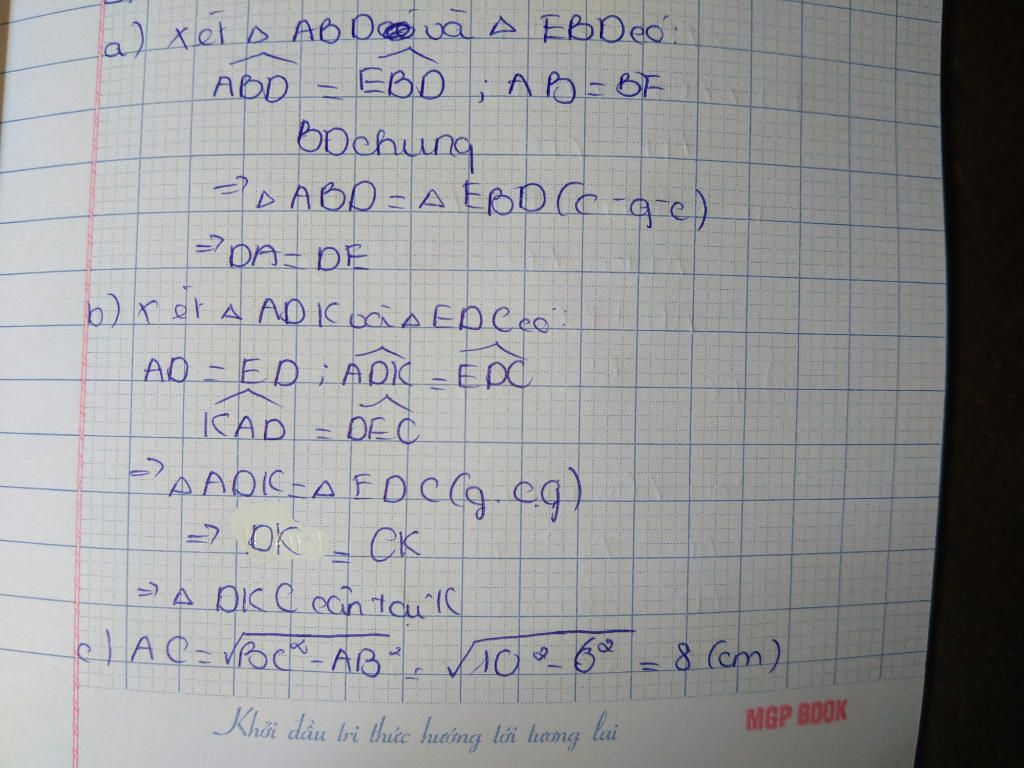 a) xét △ ABD và △ EBD có:
ABD = EBD ; AB = BE
BD chung
=> △ ABD = △ EBD (c-g-c)
=> DA = DE
b) xét △ ADK và △ EDC có:
AD = ED ; ADK = EDC
KAD = DEC
=> △ ADK = △ EDC (g.c.g)
=> DK = CK
=> △ DKC cân tại K
c) AC = √BC² - AB² = √10² - 6² = 8 (cm)
Khởi đầu tri thức hướng tới tương lai
MGP BOOK